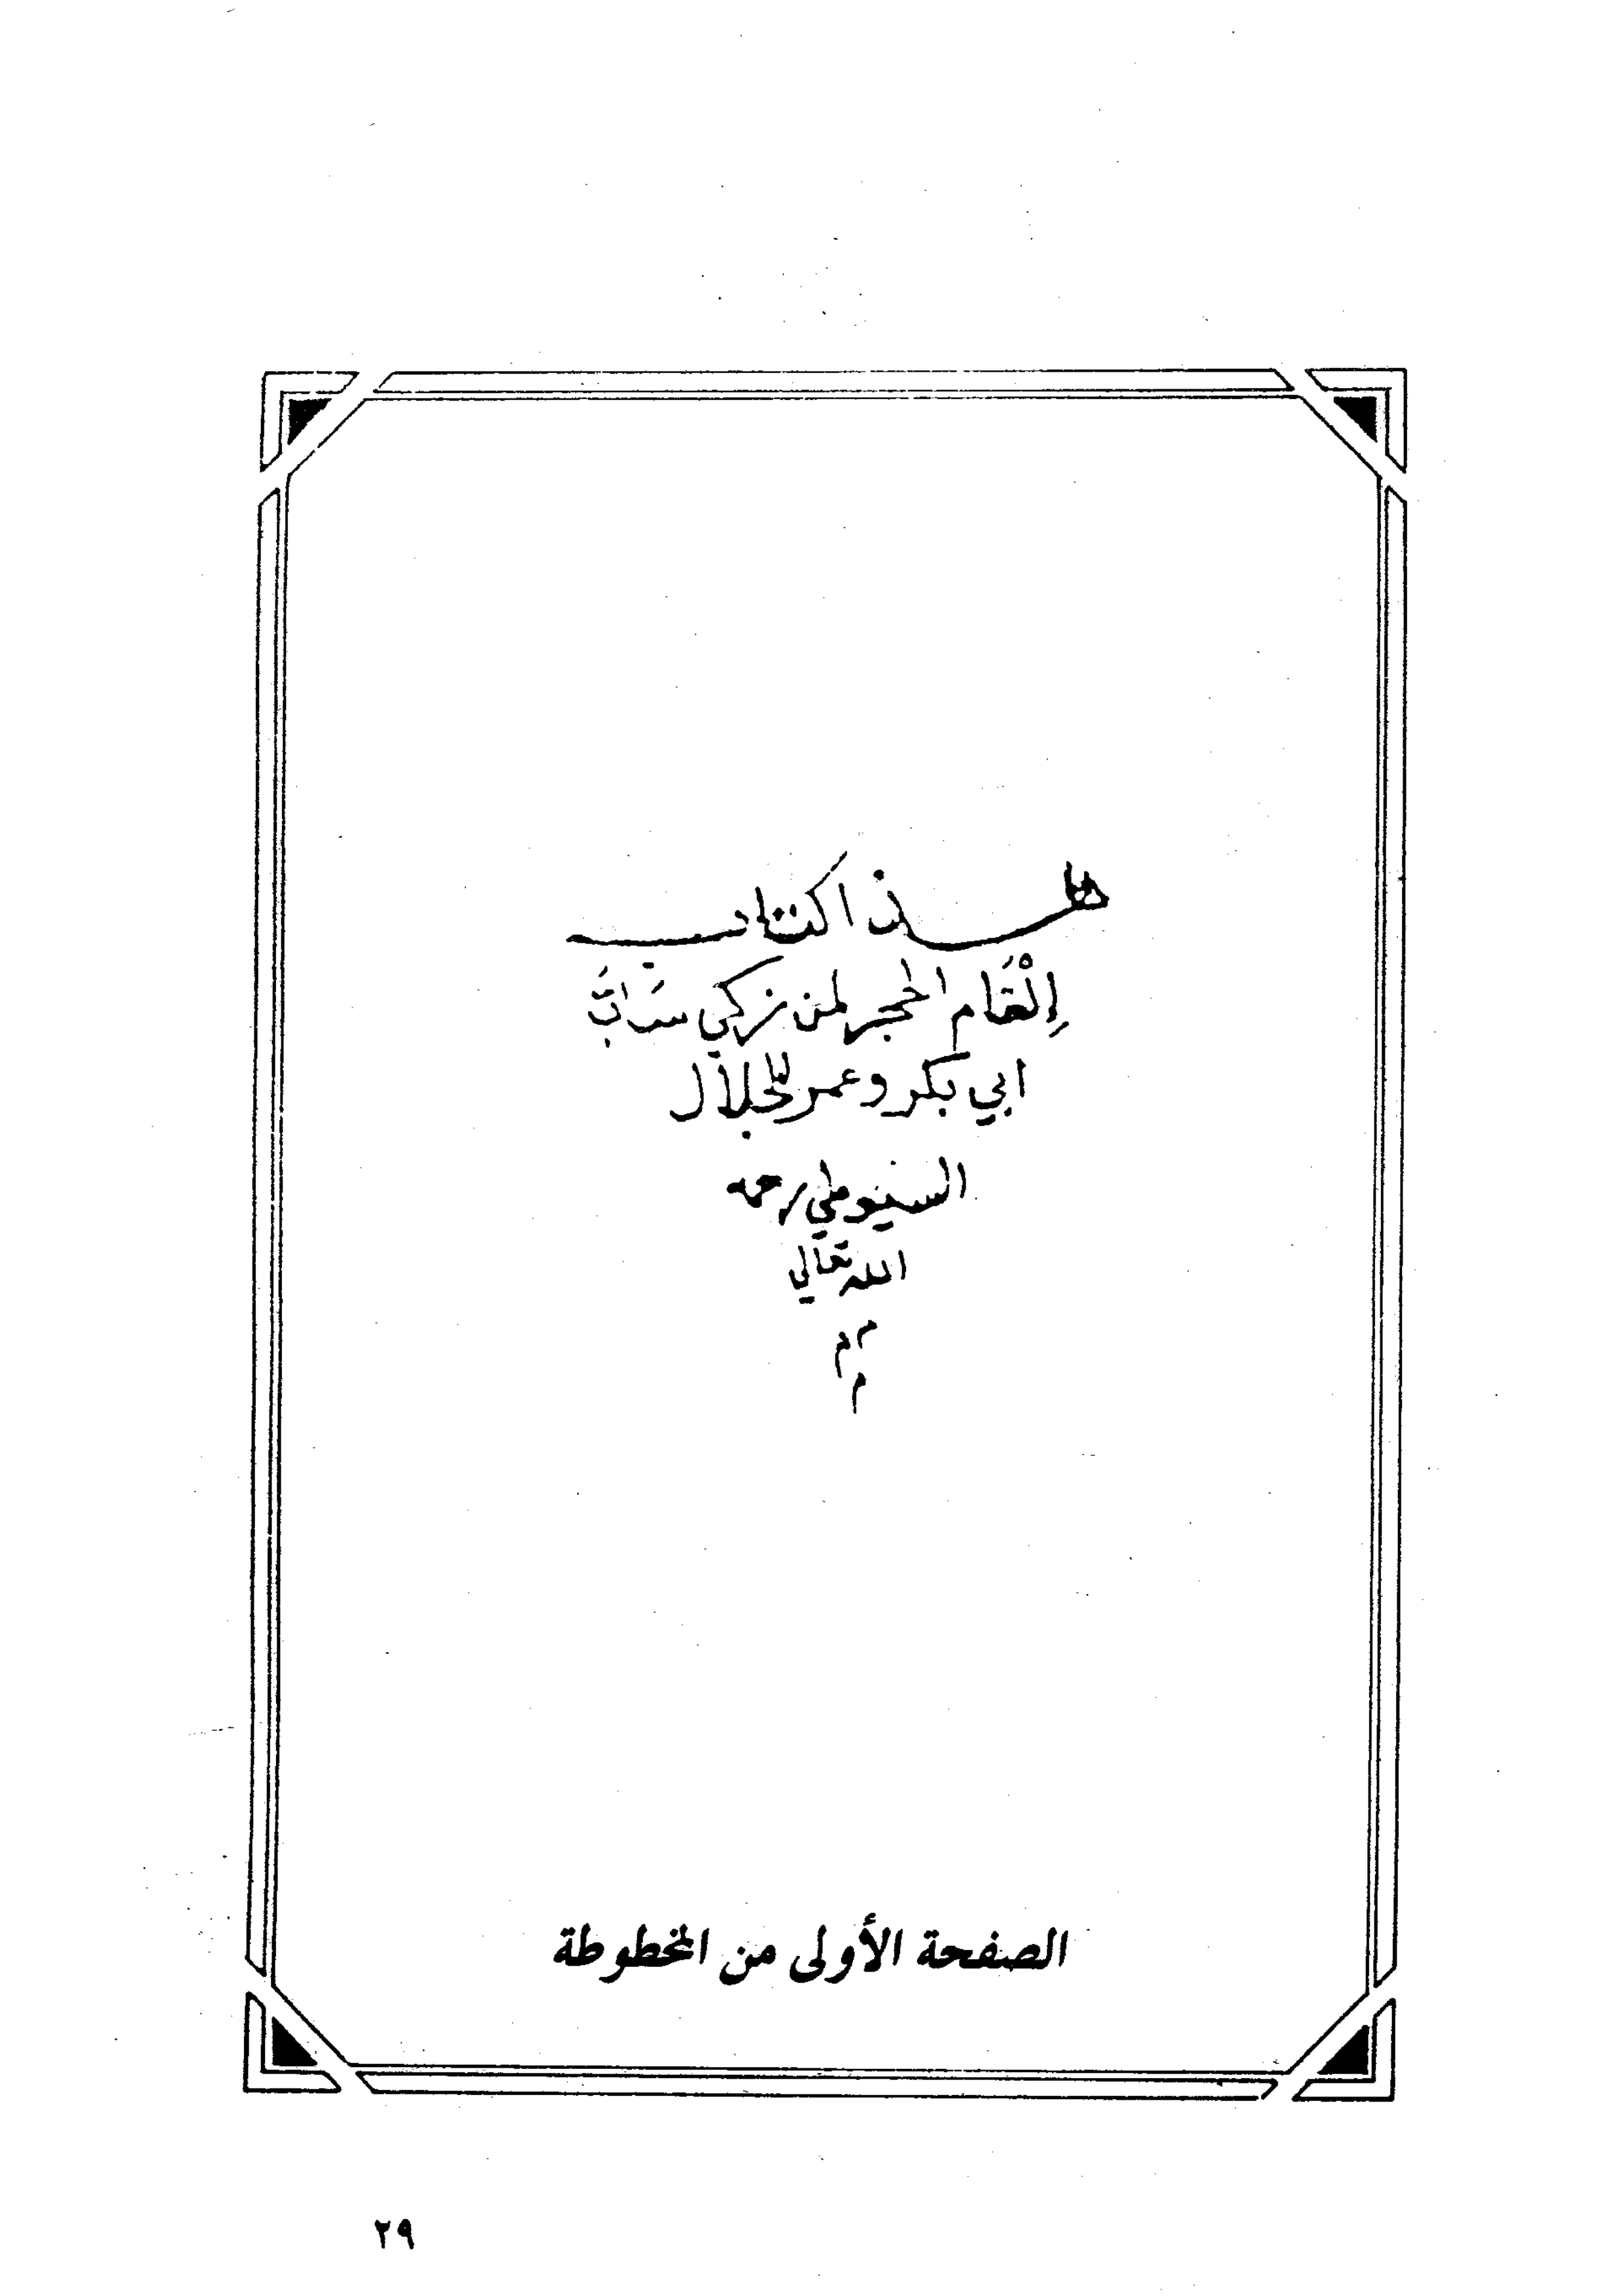 هذا كتاب
إِلْقَام الحجر لمن زكي سَابَّ
ابي بكر وعمر للجلال
السيوطي رحمه
الله تعالي
م م
م
الصفحة الأولى من المخطوطة
٢٩